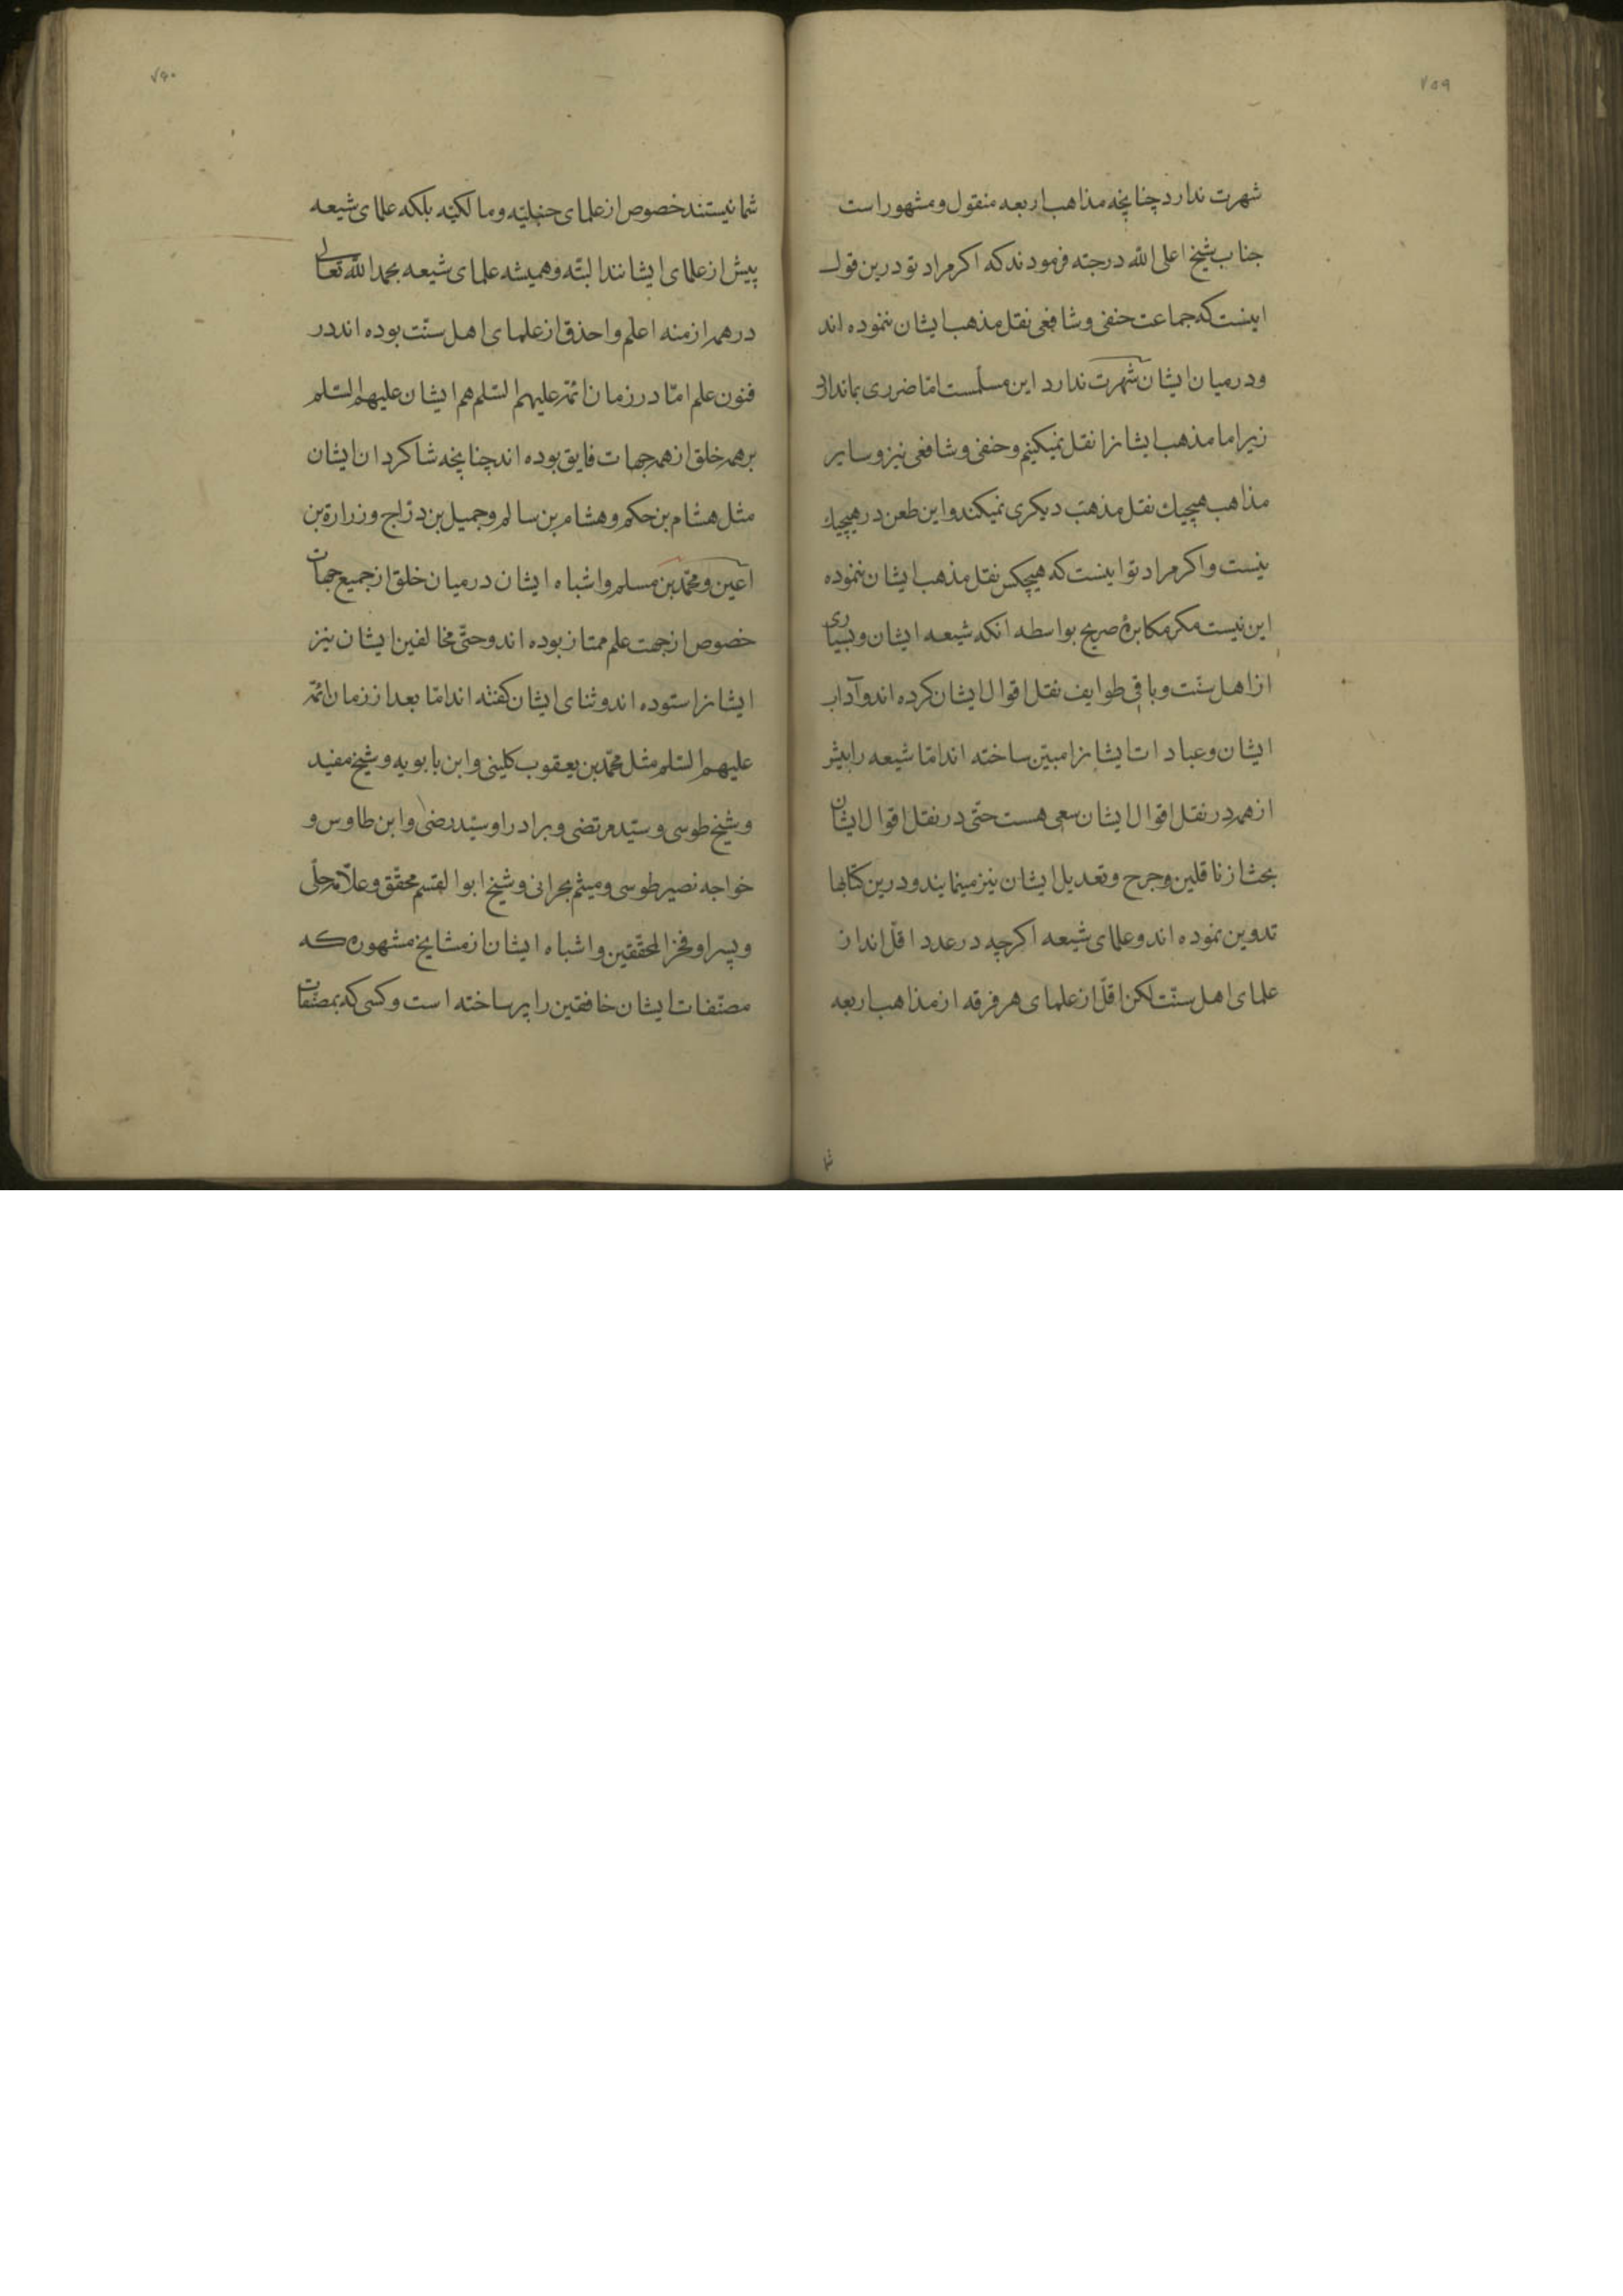 ۷۵۹
شهرت ندارد چنانچه مذاهب اربعه منقول و مشهور است
جناب شیخ اعلی الله درجته فرمودند که اکر مراد تو درین قول
اینست که جماعت حنفی و شافعی نقل مذهب ایشان ننموده اند
و در میان ایشان شهرت ندارد این مسلّمست امّا ضرری بما ندارد
زیرا ما مذهب ایشانرا نقل نمیکنیم و حنفی و شافعی نیز و سایر
مذاهب هیچیك نقل مذهب دیکری نمیکند و این طعن در هیچیك
نیست و اکر مراد تو اینست که هیچکس نقل مذهب ایشان ننموده
این نیست مکر مکابرهٔ صریح بواسطه انکه شیعه ایشان و بسیاری
از اهل سنّت و باقی طوایف نقل اقوال ایشان کرده اند و آداب
ایشان و عبادات ایشانرا مبیّن ساخته اند امّا شیعه را بیشتر
از همه در نقل اقوال ایشان سعی هست حتّی در نقل اقوال ایشان
بحث از ناقلین و جرح و تعدیل ایشان نیز مینمایند و درین کتابها
تدوین نموده اند و علمای شیعه اکرچه در عدد اقلّ اند از
علمای اهل سنّت لکن اقلّ از علمای هر فرقه از مذاهب اربعه
۷۶۰
شما نیستند خصوص از علمای حنبلیّه و مالکیّه بلکه علمای شیعه
پیش از علمای ایشانند البتّه و همیشه علمای شیعه بحمد الله تعالی
در همه ازمنه اعلم و احذق از علمای اهل سنّت بوده اند در
فنون علم امّا در زمان ائمّه علیهم السّلم هم ایشان علیهم السّلم
بر همه خلق از همه جهات فایق بوده اند چنانچه شاکردان ایشان
مثل هشام بن حکم و هشام بن سالم و جمیل بن درّاج و زرارة بن
اعین و محمّد بن مسلم و اشباه ایشان در میان خلق از جمیع جهات
خصوص از جهت علم ممتاز بوده اند و حتّی مخالفین ایشان نیز
ایشانرا ستوده اند و ثنای ایشان کفته اند امّا بعد از زمان ائمّه
علیهم السّلم مثل محمّد بن یعقوب کلینی و ابن بابویه و شیخ مفید
و شیخ طوسی و سیّد مرتضی و برادر او سیّد رضی و ابن طاوس و
خواجه نصیر طوسی و میثم بحرانی و شیخ ابو القسم محقّق و علّامه حلّی
و پسر او فخر المحقّقین و اشباه ایشان از مشایخ مشهوره که
مصنّفات ایشان خافقین را پر ساخته است و کسی که بمصنّفات